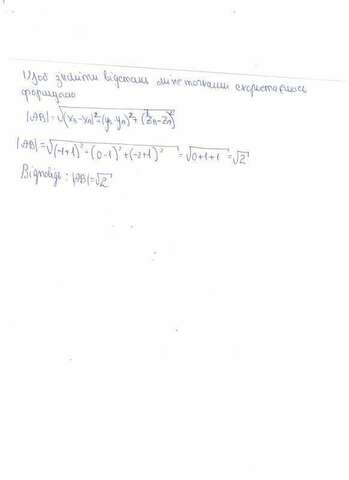 Щоб знайти відстань між точками скористаюсь
формулою
|AB|=√(xₙ-xₙ)²+(yₙ-yₙ)²+(zₙ-zₙ)²
|AB|=√(-1+1)²-(0-1)²+(-2+1)² = √0+1+1 = √2
Відповідь: |AB|=√2